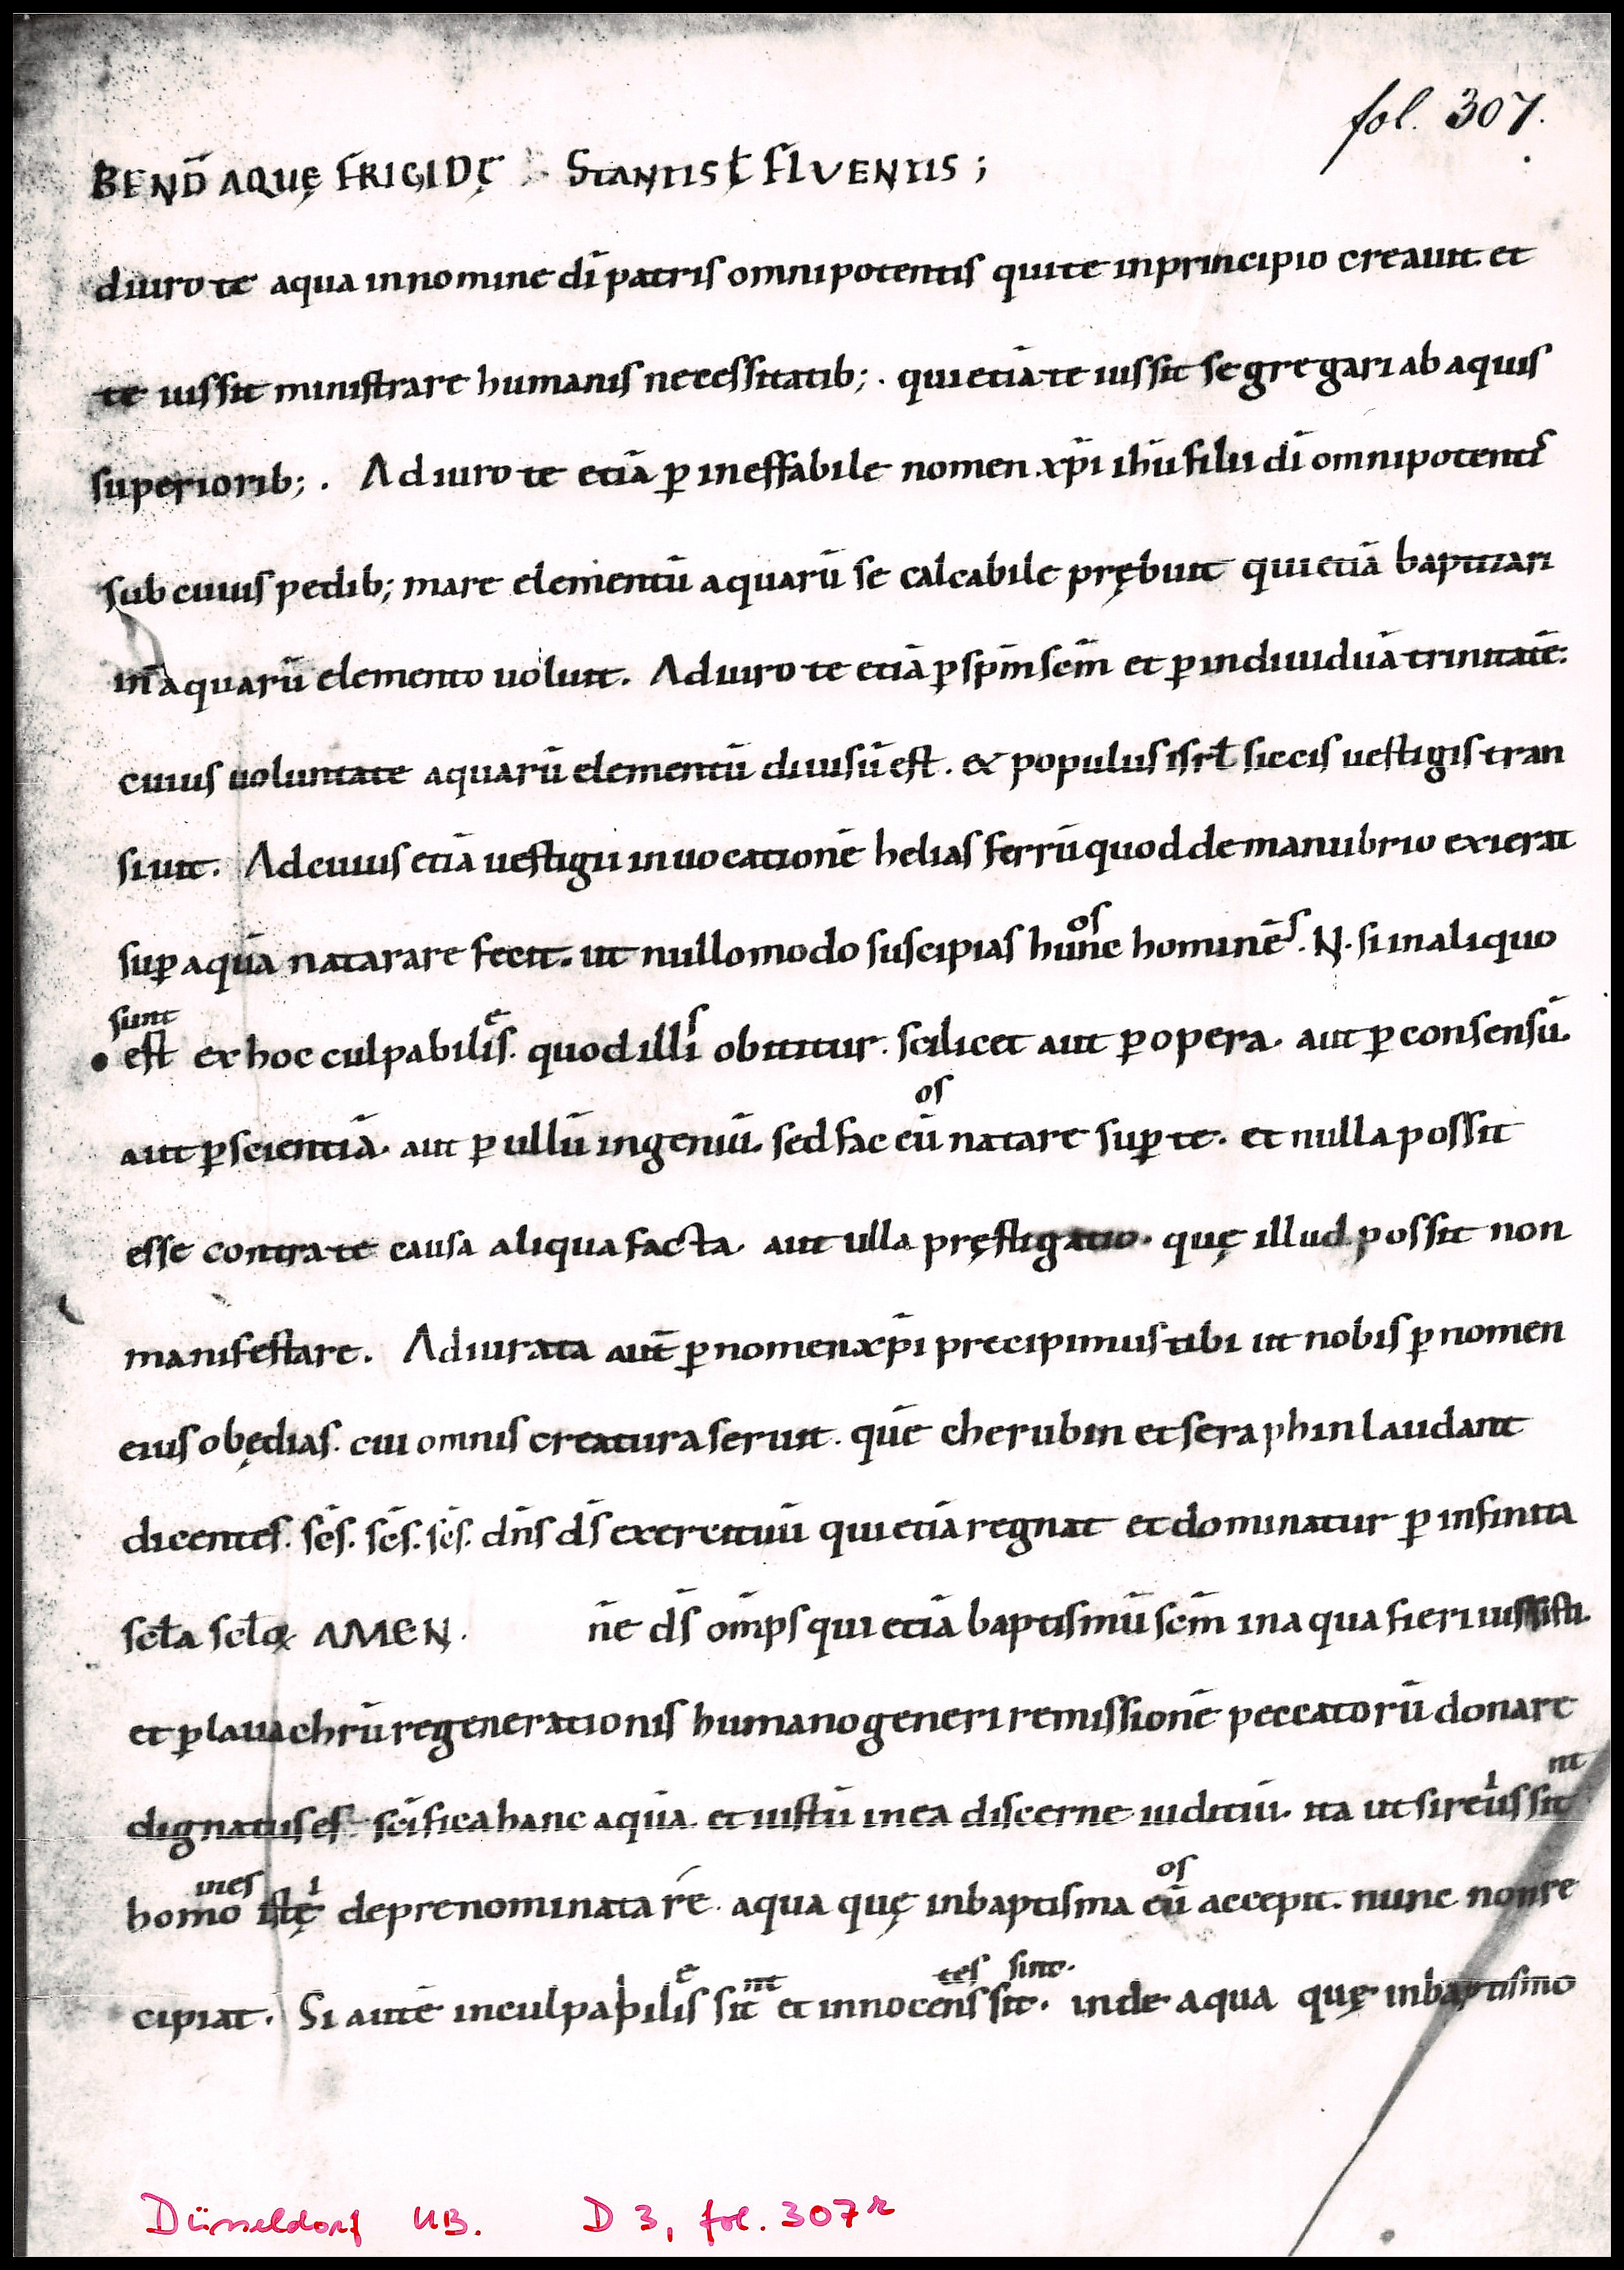 fol. 307.
BEND̄ AQUĘ FRIGIDĘ STANTIS ł FLVENTIS;
diuro te aqua in nomine dī patris omnipotentis qui te in principio creauit. et
te iussit ministrare humanis necessitatib; . qui etiā te iussit segregari ab aquis
superiorib; . Adiuro te etiā ꝑ ineffabile nomen xp̄i ih̄u filii dī omnipotentis
sub cuius pedib; mare elementū aquarū se calcabile prębuit qui etiā baptizari
in aquarū elemento uoluit. Adiuro te etiā ꝑ sp̄m sc̄m et ꝑ indiuiduā trinitatē.
cuius uoluntate aquarū elementū diuisū est. & populus isrł siccis uestigis tran
siuit. Ad cuius etiā uestigii inuocationē helias ferrū quod de manubrio exierat
suꝑ aquā natarare fecit. ut nullo modo suscipias hunc
os
hominē
s
. N. si in aliquo
sunt
est ex hoc culpabilis
e
. quod illi
s
obititur. scilicet aut ꝑ opera. aut ꝑ consensū.
os
aut ꝑ scientiā. aut ꝑ ullū ingeniū. sed fac eū natare suꝑ te. et nulla possit
esse contra te causa aliqua facta. aut ulla pręstigatio. quę illud possit non
manifestare. Adiurata aut̄ ꝑ nomen xp̄i precipimus tibi ut nobis ꝑ nomen
eius obędias. cui omnis creatura seruit. quē cherubin et seraphin laudant
dicentes. sc̄s. sc̄s. sc̄s. dn̄s ds̄ exercituū qui etiā regnat et dominatur ꝑ infinita
scła scłoꝝ AMEN. n̄e ds̄ om̄ps qui etiā baptismū sc̄m in aqua fieri iussisti.
et ꝑ lauachrū regenerationis humano generi remissionē peccatorū donare
i nt
dignatus es. sc̄ifica hanc aquā. et iustū in ea discerne iuditiū. ita ut si reus sit
ines i os
homo istę de prenominata rē. aqua quę in baptisma eū accepit. nunc non re
e nt tes sint.
cipiat. Si autē inculpabilis sit et innocens sit. inde aqua quę in baptismo
Düsseldorf UB. D 3, fol. 307r